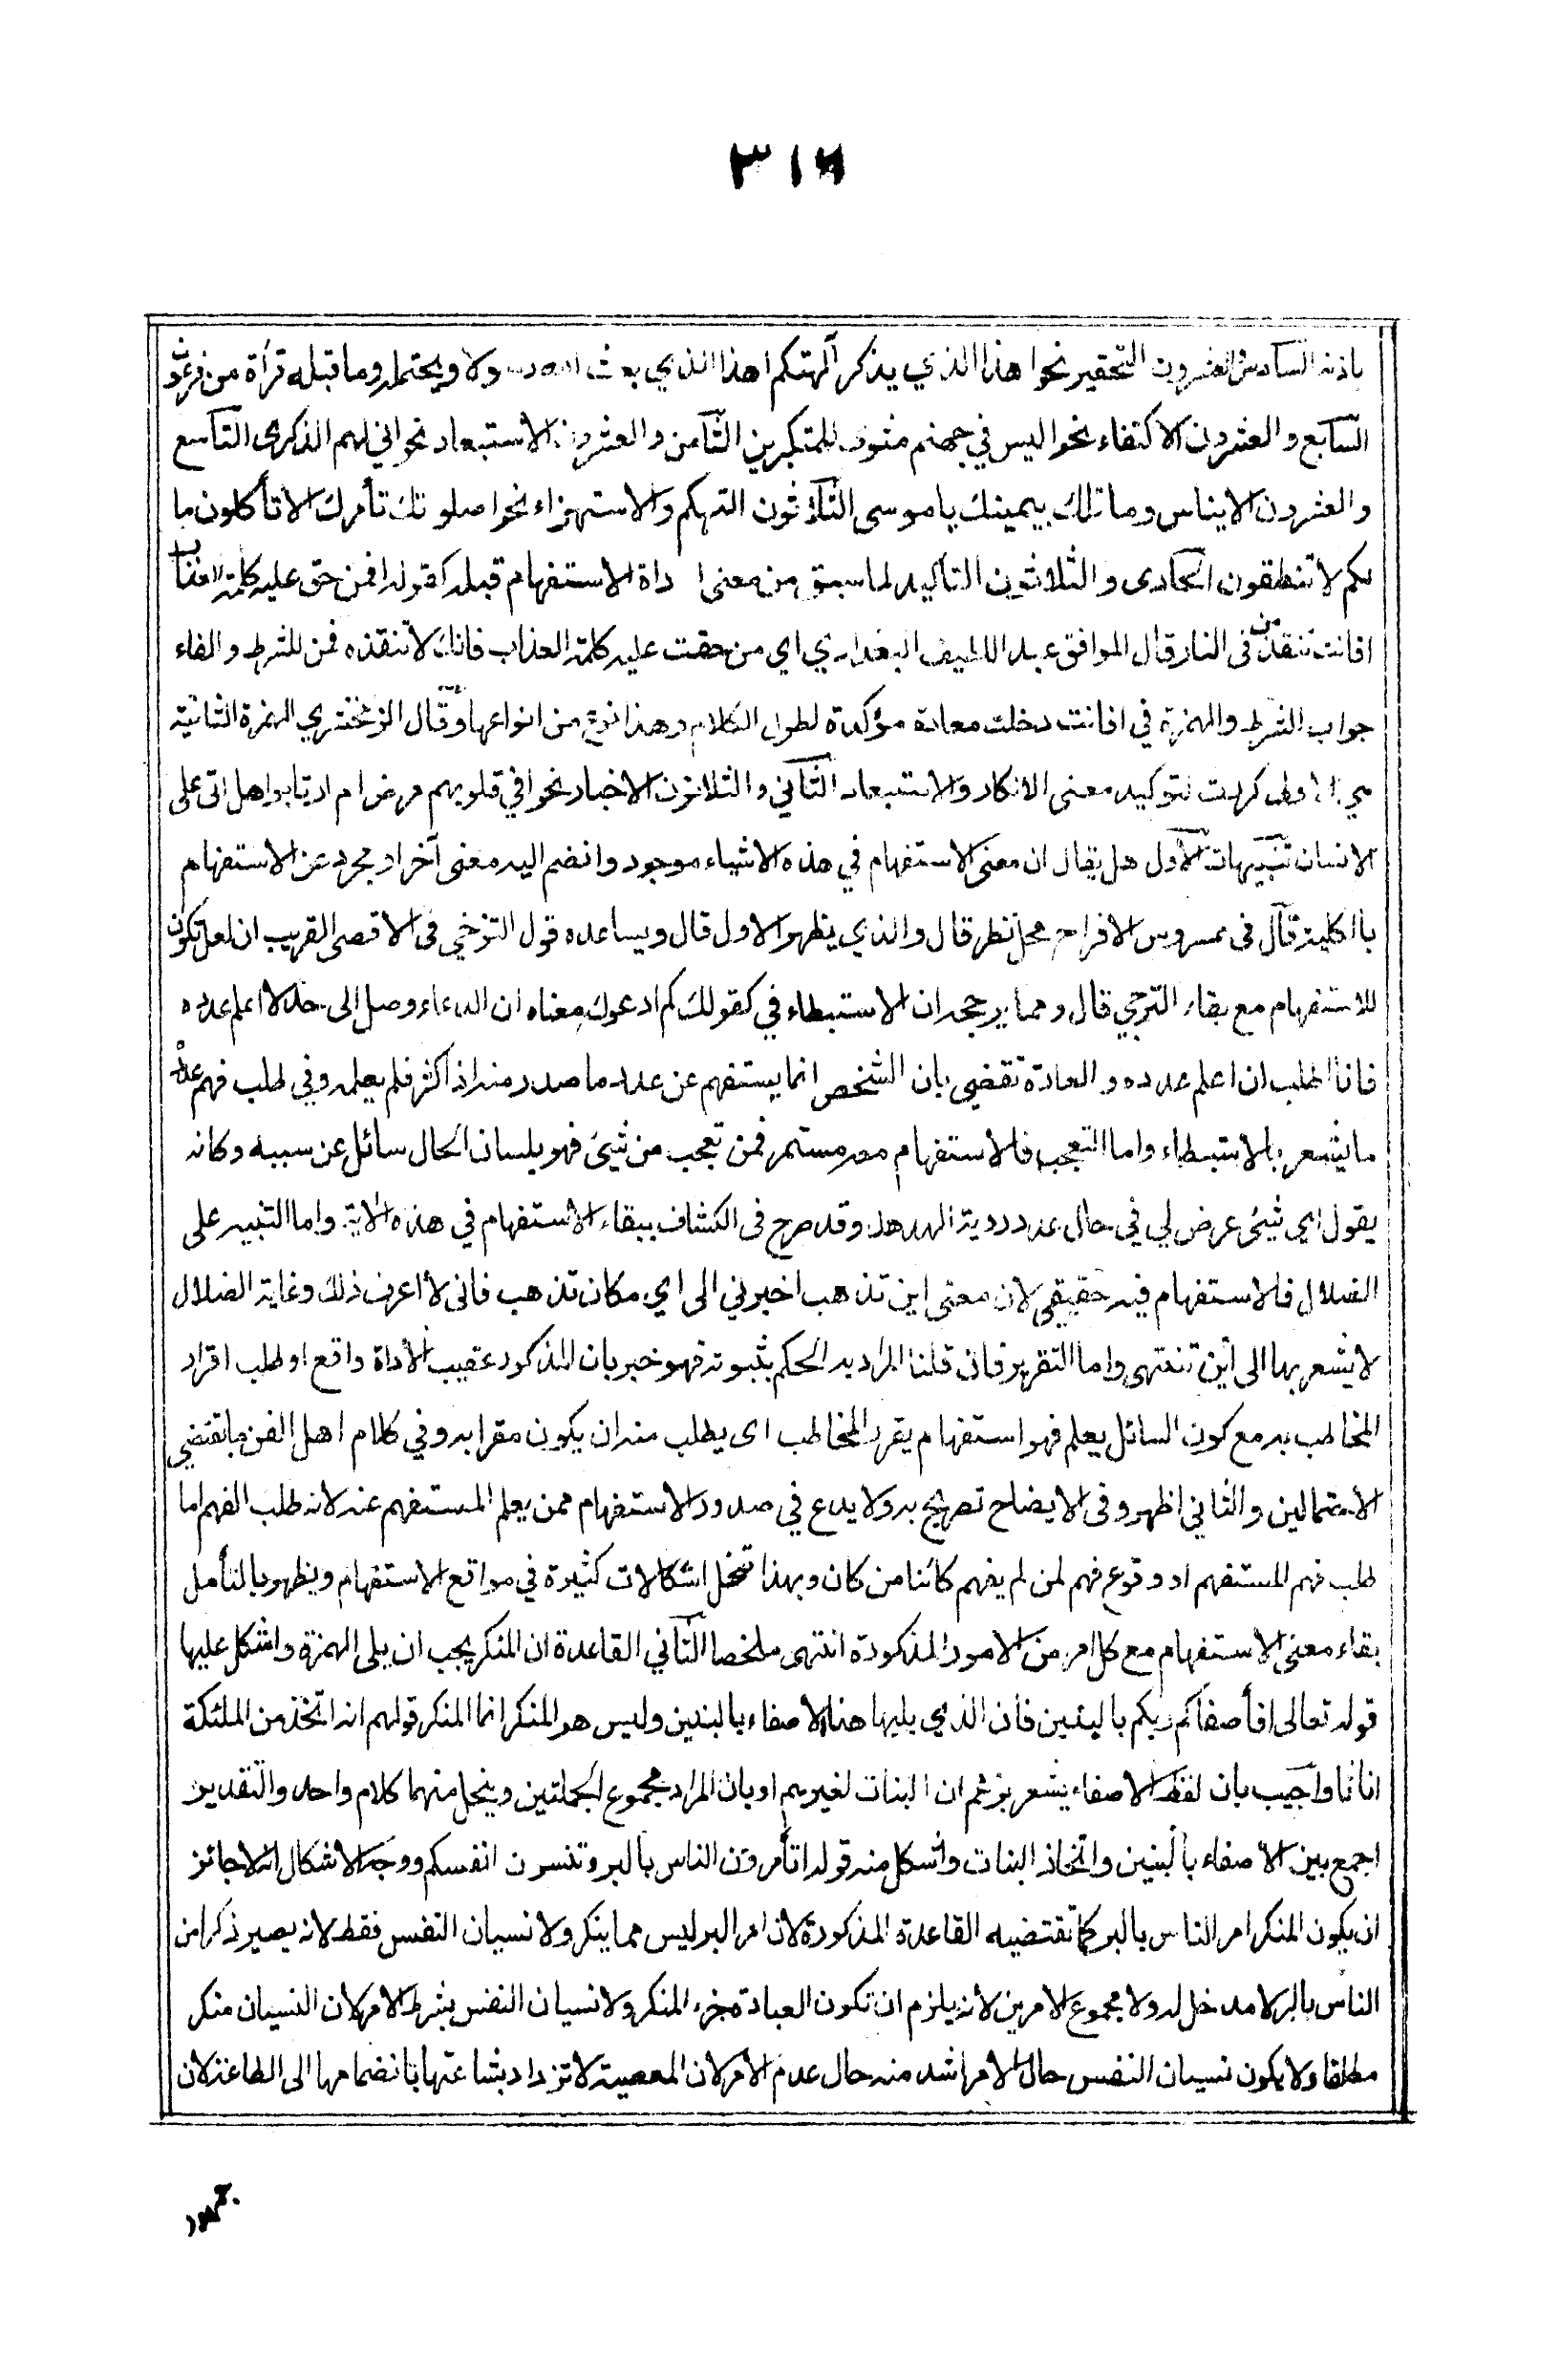 ٣١٦
باذنه السادس والعشرون التحقير نحو اهذا الذي يذكر آلهتكم اهذا الذي بعث الله رسولا ويحتمله وما قبله قرأة من فرعون
السابع والعشرون الاكتفاء نحو اليس في جهنم مثوى للمتكبرين الثامن والعشرون الاستبعاد نحو اني لهم الذكرى التاسع
والعشرون الايناس وما تلك بيمينك ياموسى الثلاثون التهكم والاستهزاء نحو اصلوتك تأمرك الا تأكلون ما
لكم لا تنطقون الحادى والثلاثون التاكيد لما سبق من معنى اداة الاستفهام قبله كقوله افمن حق عليه كلمة العذاب
افانت تنقذ من فى النار قال الموافق عبد اللطيف البغدادي اي من حقت عليه كلمة العذاب فانك لا تنقذه فمن للشرط والفاء
جواب الشرط والهمزة في افانت دخلت معادة مؤكدة لطول الكلام وهذا نوع من انواعها وقال الزمخشري الهمزة الثانية
هي الاولى كررت لتوكيد معنى الانكار والاستبعاد الثاني والثلاثون الاخبار نحو افي قلوبهم مرض ام ارتابوا هل اتى على
الانسان تنبيهات الاول هل يقال ان معنى الاستفهام في هذه الاشياء موجود وانضم اليه معنى آخر او مجرد عن الاستفهام
بالكلية قال فى عروس الافراح محل نظر قال والذي يظهر الاول قال ويساعده قول التنوخي فى الاقصى القريب ان لعل تكون
للاستفهام مع بقاء الترجي قال ومما يرجحه ان الاستبطاء في كقولك كم ادعوك معناه ان الدعاء وصل الى حد لا اعلم عدده
فانا اطلب ان اعلم عدده والعادة تقضي بان الشخص انما يستفهم عن عدد ما صدر منه اذا كثر فلم يعلمه وفي طلب فهم عدده
ما يشعر بالاستبطاء واما التعجب فالاستفهام معه مستمر فمن تعجب من شيئ فهو بلسان الحال سائل عن سببه وكانه
يقول اي شيئ عرض لي في حال عدم روية الهدهد وقد صرح فى الكشاف ببقاء الاستفهام في هذه الآية واما التنبيه على
الضلال فالاستفهام فيه حقيقي لان معنى اين تذهب اخبرني الى اي مكان تذهب فانى لا اعرف ذلك وغاية الضلال
لا يشعر بها الى اين تنتهى واما التقرير فان قلنا المراد به الحكم بثبوته فهو خبر بان المذكور عقيب الاداة واقع او طلب اقرار
المخاطب به مع كون السائل يعلم فهو استفهام يقرر المخاطب اى يطلب منه ان يكون مقرا به وفي كلام اهل الفن ما يقتضي
الاحتمالين والثاني اظهر وفى الايضاح تصريح به ولا بدع في صدور الاستفهام ممن يعلم المستفهم عنه لانه طلب الفهم اما
طلب فهم المستفهم او وقوع فهم لمن لم يفهم كائنا من كان وبهذا تنحل اشكالات كثيرة في مواقع الاستفهام ويظهر بالتأمل
بقاء معنى الاستفهام مع كل امر من الامور المذكورة انتهى ملخصا الثاني القاعدة ان المنكر يجب ان يلى الهمزة واشكل عليها
قوله تعالى افأصفاكم ربكم بالبنين فان الذي يليها هنا الاصفاء بالبنين وليس هو المنكر انما المنكر قولهم انه اتخذ من الملئكة
اناثا واجيب بان لفظ الاصفاء يشعر بزعم ان البنات لغيرهم او بان المراد مجموع الجملتين وينحل منهما كلام واحد والتقدير
اجمع بين الاصفاء بالبنين واتخاذ البنات واشكل منه قوله اتأمرون الناس بالبر وتنسون انفسكم ووجه الاشكال انه لا جائز
ان يكون المنكر امر الناس بالبر كما تقتضيه القاعدة المذكورة لان امر البر ليس مما ينكر ولا نسيان النفس فقط لانه يصير ذكر امر
الناس بالبر لا مدخل له ولا مجموع الامرين لانه يلزم ان تكون العبادة جزء المنكر ولا نسيان النفس بشرط الامر لان النسيان منكر
مطلقا ولا يكون نسيان النفس حال الامر اشد منه حال عدم الامر لان المعصية لا تزداد بشاعتها بانضمامها الى الطاعة لان
جمهور